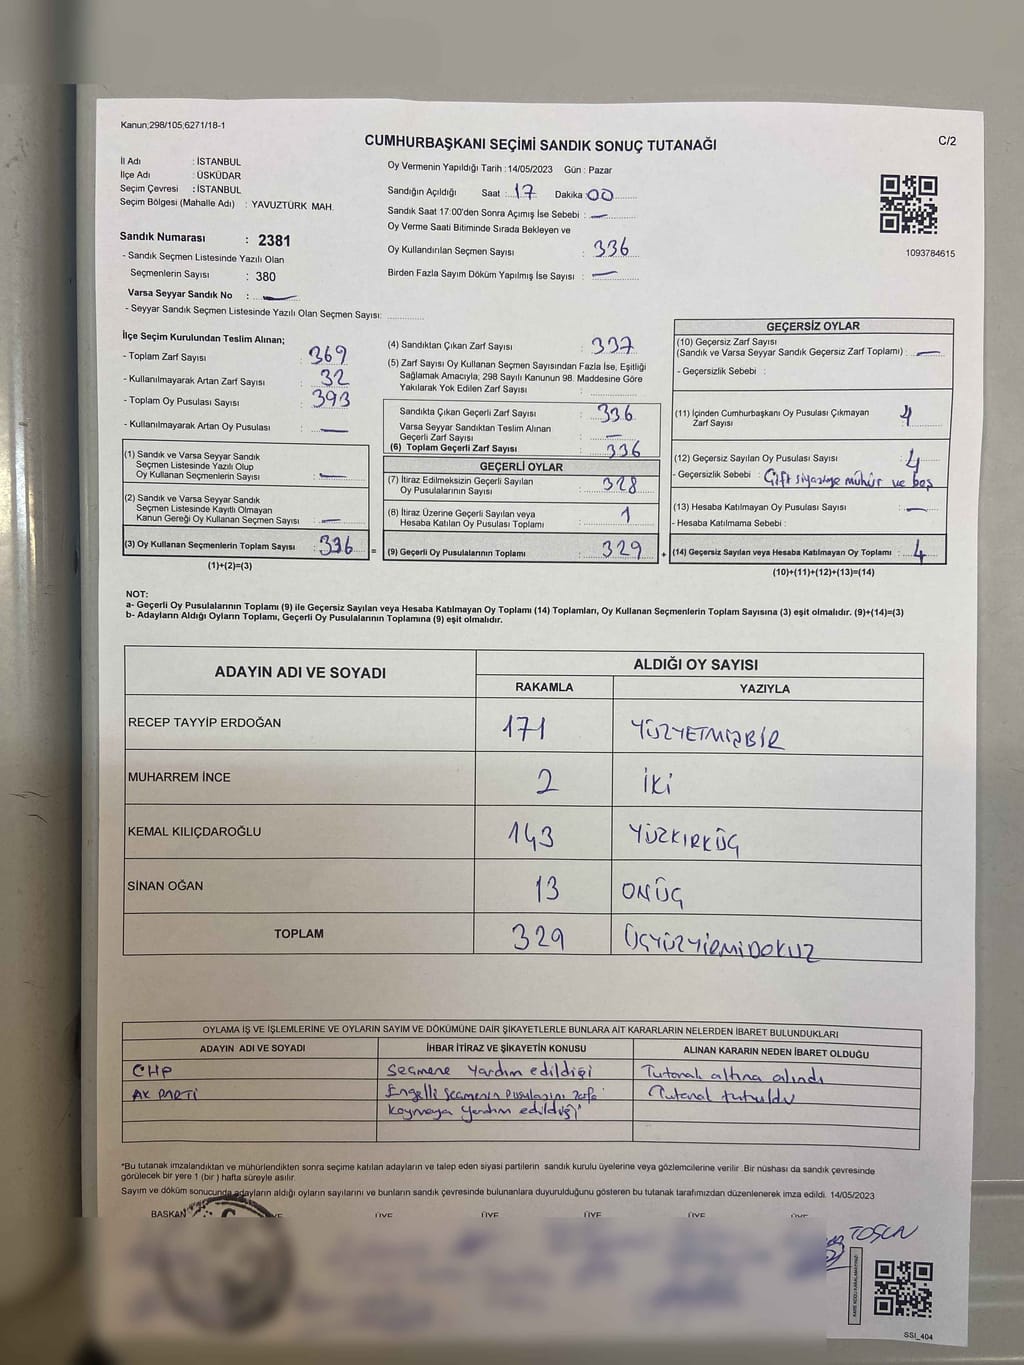 Kanun;298/105;6271/18-1
C/2
CUMHURBAŞKANI SEÇİMİ SANDIK SONUÇ TUTANAĞI
İl Adı : İSTANBUL
İlçe Adı : ÜSKÜDAR
Seçim Çevresi : İSTANBUL
Seçim Bölgesi (Mahalle Adı) : YAVUZTÜRK MAH.
Sandık Numarası : 2381
- Sandık Seçmen Listesinde Yazılı Olan
Seçmenlerin Sayısı : 380
Varsa Seyyar Sandık No : —
- Seyyar Sandık Seçmen Listesinde Yazılı Olan Seçmen Sayısı:
Oy Vermenin Yapıldığı Tarih : 14/05/2023 Gün : Pazar
Sandığın Açıldığı Saat : 17 Dakika 00
Sandık Saat 17:00'den Sonra Açımış İse Sebebi : —
Oy Verme Saati Bitiminde Sırada Bekleyen ve
Oy Kullandırılan Seçmen Sayısı : 336
Birden Fazla Sayım Döküm Yapılmış İse Sayısı : —
1093784615
İlçe Seçim Kurulundan Teslim Alınan;
- Toplam Zarf Sayısı : 369
- Kullanılmayarak Artan Zarf Sayısı : 32
- Toplam Oy Pusulası Sayısı : 393
- Kullanılmayarak Artan Oy Pusulası : —
(1) Sandık ve Varsa Seyyar Sandık
Seçmen Listesinde Yazılı Olup
Oy Kullanan Seçmenlerin Sayısı : —
(2) Sandık ve Varsa Seyyar Sandık
Seçmen Listesinde Kayıtlı Olmayan
Kanun Gereği Oy Kullanan Seçmen Sayısı : —
(3) Oy Kullanan Seçmenlerin Toplam Sayısı : 336 =
(1)+(2)=(3)
(4) Sandıktan Çıkan Zarf Sayısı : 337
(5) Zarf Sayısı Oy Kullanan Seçmen Sayısından Fazla İse, Eşitliği
Sağlamak Amacıyla; 298 Sayılı Kanunun 98. Maddesine Göre
Yakılarak Yok Edilen Zarf Sayısı :
Sandıkta Çıkan Geçerli Zarf Sayısı : 336
Varsa Seyyar Sandıktan Teslim Alınan
Geçerli Zarf Sayısı : —
(6) Toplam Geçerli Zarf Sayısı : 336
GEÇERLİ OYLAR
(7) İtiraz Edilmeksizin Geçerli Sayılan
Oy Pusulalarının Sayısı : 328
(8) İtiraz Üzerine Geçerli Sayılan veya
Hesaba Katılan Oy Pusulası Toplamı : 1
(9) Geçerli Oy Pusulalarının Toplamı : 329 +
GEÇERSİZ OYLAR
(10) Geçersiz Zarf Sayısı
(Sandık ve Varsa Seyyar Sandık Geçersiz Zarf Toplamı) : —
- Geçersizlik Sebebi :
(11) İçinden Cumhurbaşkanı Oy Pusulası Çıkmayan
Zarf Sayısı : 4
(12) Geçersiz Sayılan Oy Pusulası Sayısı : 4
- Geçersizlik Sebebi : Çift siyasiye mühür ve boş
(13) Hesaba Katılmayan Oy Pusulası Sayısı : —
- Hesaba Katılmama Sebebi :
(14) Geçersiz Sayılan veya Hesaba Katılmayan Oy Toplamı : 4
(10)+(11)+(12)+(13)=(14)
NOT:
a- Geçerli Oy Pusulalarının Toplamı (9) ile Geçersiz Sayılan veya Hesaba Katılmayan Oy Toplamı (14) Toplamları, Oy Kullanan Seçmenlerin Toplam Sayısına (3) eşit olmalıdır. (9)+(14)=(3)
b- Adayların Aldığı Oyların Toplamı, Geçerli Oy Pusulalarının Toplamına (9) eşit olmalıdır.
ADAYIN ADI VE SOYADI
ALDIĞI OY SAYISI
RAKAMLA YAZIYLA
RECEP TAYYİP ERDOĞAN 171 YÜZYETMİŞBİR
MUHARREM İNCE 2 İKİ
KEMAL KILIÇDAROĞLU 143 YÜZKIRKÜÇ
SİNAN OĞAN 13 ONÜÇ
TOPLAM 329 ÜÇYÜZYİRMİDOKUZ
OYLAMA İŞ VE İŞLEMLERİNE VE OYLARIN SAYIM VE DÖKÜMÜNE DAİR ŞİKAYETLERLE BUNLARA AİT KARARLARIN NELERDEN İBARET BULUNDUKLARI
ADAYIN ADI VE SOYADI İHBAR İTİRAZ VE ŞİKAYETİN KONUSU ALINAN KARARIN NEDEN İBARET OLDUĞU
CHP Seçmene Yardım edildiği Tutanak altına alındı
AK PARTİ Engelli seçmenin pusulasını zarfa Tutanak tutuldu
koymaya yardım edildiği
*Bu tutanak imzalandıktan ve mühürlendikten sonra seçime katılan adayların ve talep eden siyasi partilerin sandık kurulu üyelerine veya gözlemcilerine verilir .Bir nüshası da sandık çevresinde
görülecek bir yere 1 (bir ) hafta süreyle asılır.
Sayım ve döküm sonucunda adayların aldığı oyların sayılarını ve bunların sandık çevresinde bulunanlara duyurulduğunu gösteren bu tutanak tarafımızdan düzenlenerek imza edildi. 14/05/2023
BAŞKAN ÜYE ÜYE ÜYE ÜYE ÜYE ÜYE
TOSUN
SSI_404